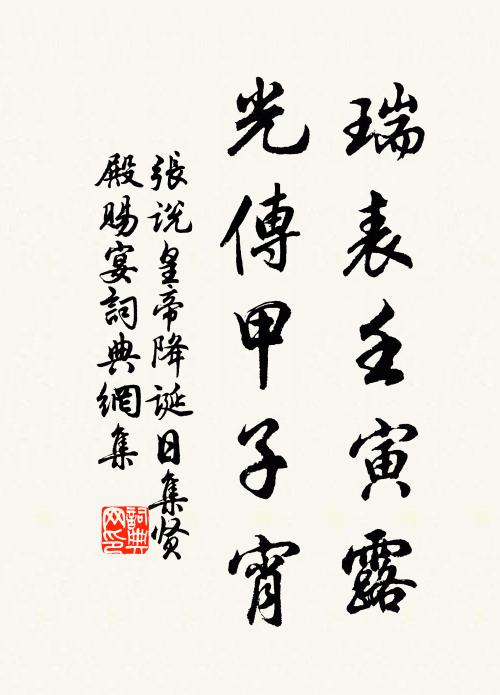 瑞表壬寅露
光傳甲子宵
張說皇帝降誕日集賢
殿賜宴詞典網集
詞典网印